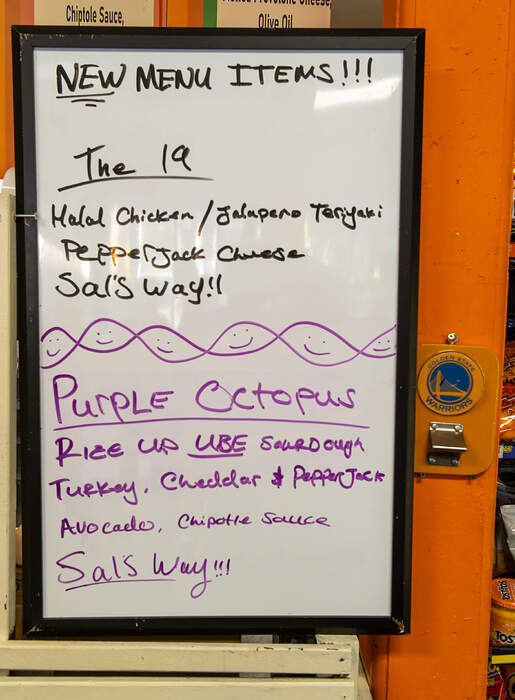 Chiptole Sauce,
Olive Oil
NEW MENU ITEMS!!!
The 19
Halal Chicken / Jalapeno Teriyaki
PepperJack Cheese
Sal's Way!!
Purple Octopus
Rize Up UBE Sourdough
Turkey, Cheddar & PepperJack
Avocado, Chipotle Sauce
Sal's Way!!!
GOLDEN STATE
WARRIORS